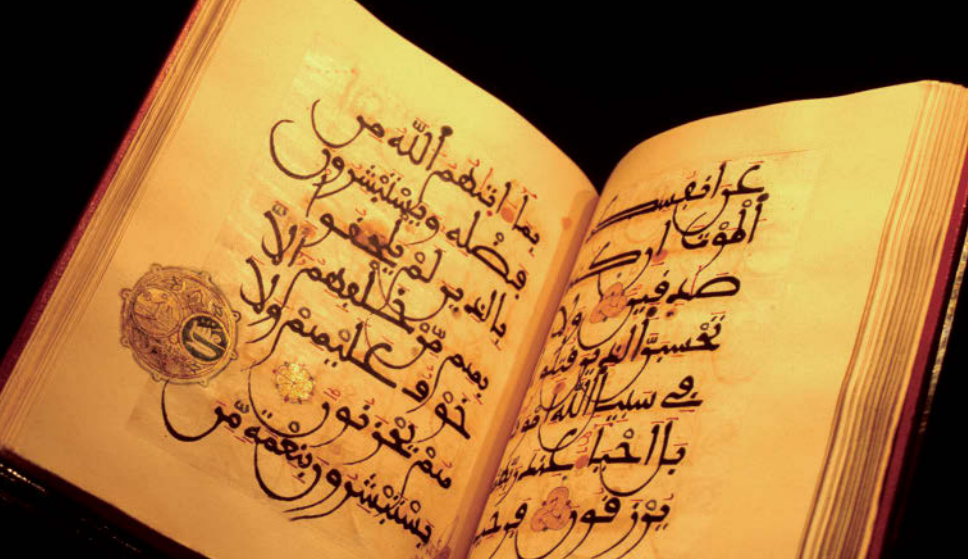 عَن
ٱلْمَوْتَ إِن
صَٰدِقِينَ وَلَا
تَحْسَبَنَّ ٱلَّذِينَ قُتِلُوا
فِي سَبِيلِ ٱللَّهِ
بَلْ أَحْيَاءٌ عِندَ رَبِّهِمْ
يُرْزَقُونَ
بِمَا ءَاتَىٰهُمُ ٱللَّهُ مِن
فَضْلِهِ وَيَسْتَبْشِرُونَ
بِٱلَّذِينَ لَمْ يَلْحَقُوا
بِهِم مِّنْ خَلْفِهِمْ أَلَّا
خَوْفٌ عَلَيْهِمْ وَلَا
هُمْ يَحْزَنُونَ
يَسْتَبْشِرُونَ بِنِعْمَةٍ مِّنَ